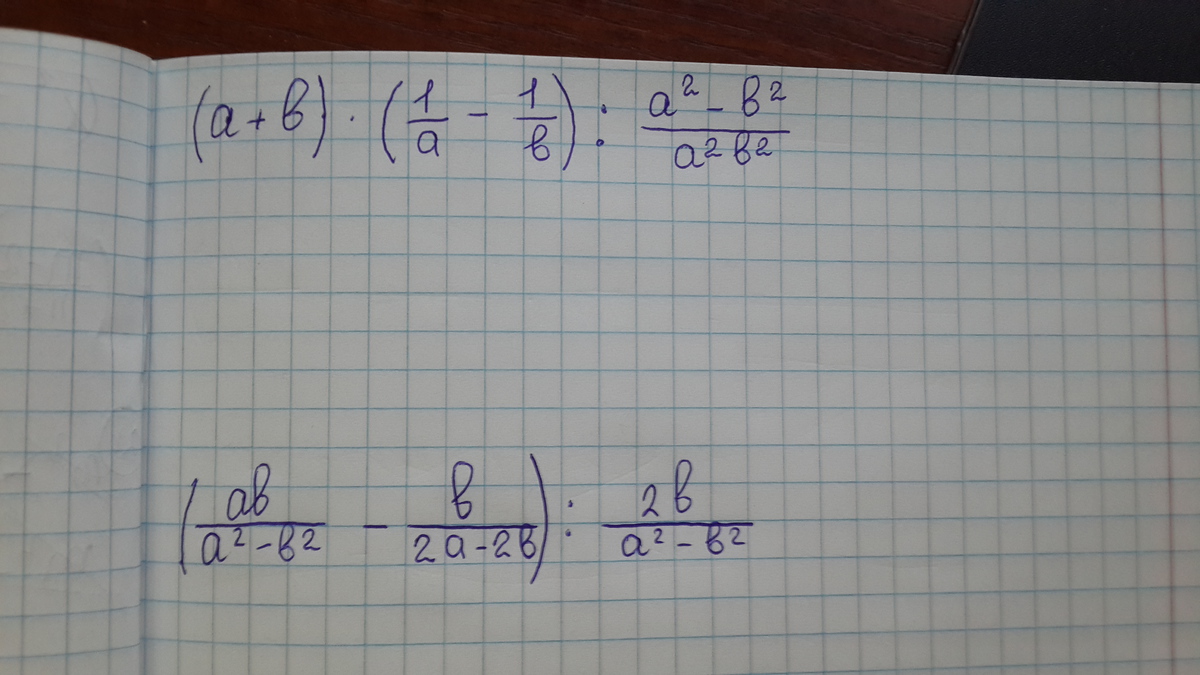 (a + b) · (1/a - 1/b) : (a² - b²)/(a² b²)
(ab/(a² - b²) - b/(2a - 2b)) : 2b/(a² - b²)